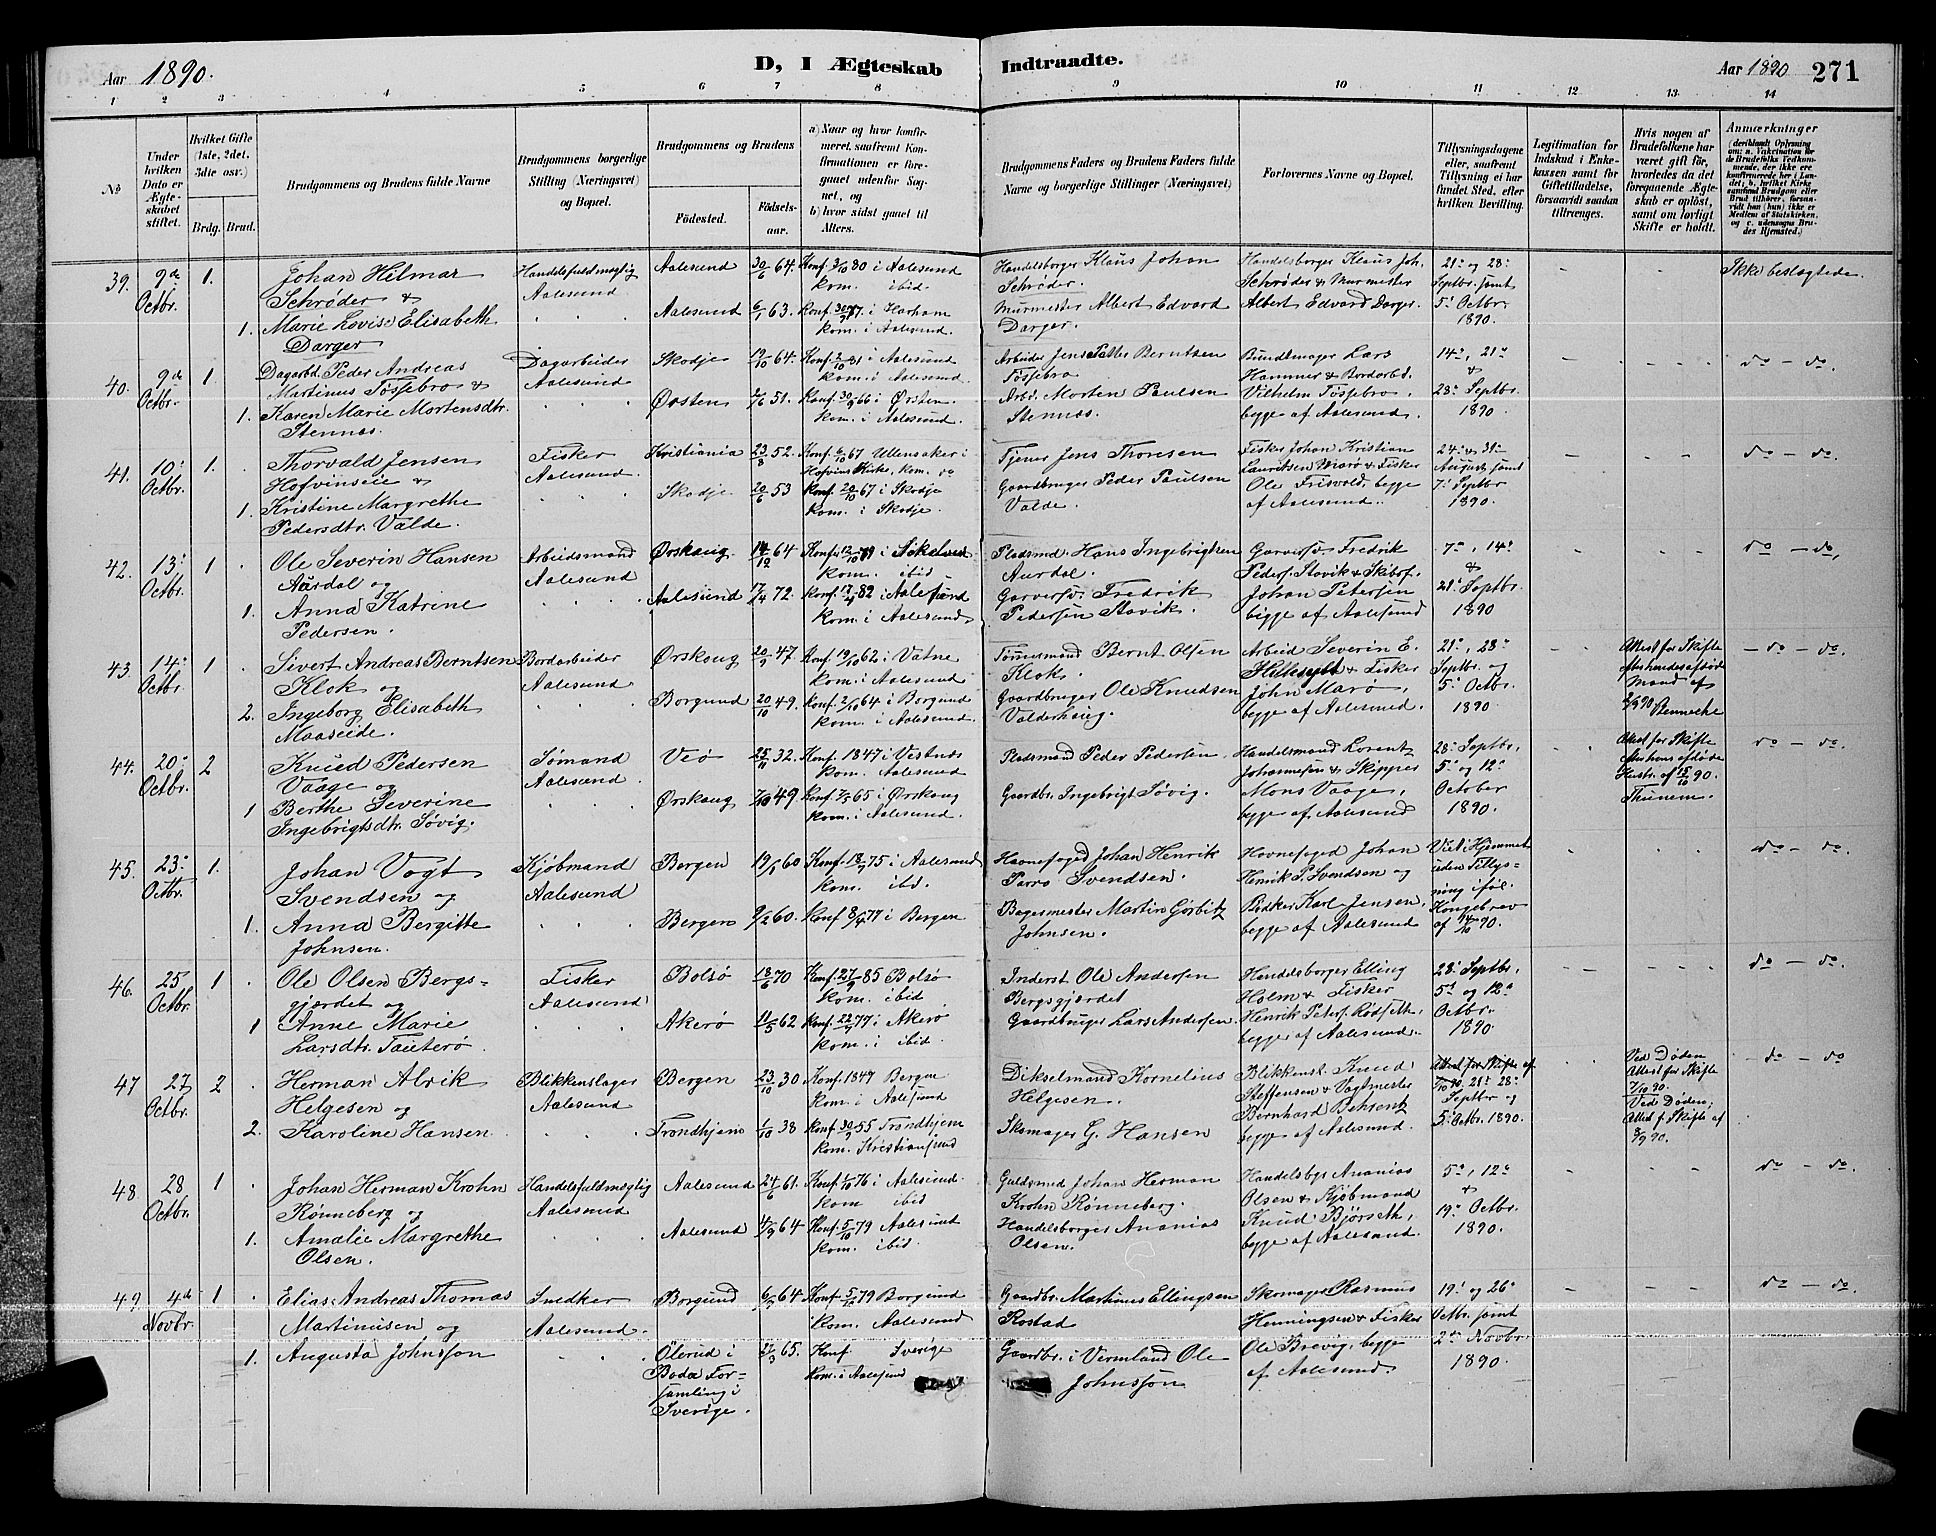 Aar 1890. D, I Ægteskab Indtraadte. Aar 1890 271
1 2 3 4 5 6 7 8 9 10 11 12 13 14
No
Under hvilken Dato er Ægteskabet stiftet.
Hvilket Gifte (1ste, 2det, 3die osv.)
Brdg. Brud.
Brudgommens og Brudens fulde Navne
Brudgommens borgerlige Stilling (Næringsvei) og Bopæl.
Brudgommens og Brudens
Födested. Födsels-aar.
a) Naar og hvor konfirmeret, saafremt Konfirmationen er foregaaet udenfor Sognet, og
b) hvor sidst gaaet til Alters.
Brudgommens Faders og Brudens Faders fulde Navne og borgerlige Stillinger (Næringsvei)
Forlovernes Navne og Bopæl.
Tillysningsdagene eller, saafremt Tillysning ei har fundet Sted, efter hvilken Bevilling.
Legitimation for Indskud i Enkekassen samt for Giftetilladelse, forsaavidt saadan tiltrænges.
Hvis nogen af Brudefolkene har været gift før, hvorledes da det foregaaende Ægteskab er opløst, samt om lovligt Skifte er holdt.
Anmærkninger
39. 9de Octbr. 1. Johan Hilmar Schrøder &
Handelsfuldmægtig Aalesund
Aalesund 30/6 64. Konf. 3/10 80 i Aalesund kom. ibid.
Handelsborger Klaus Johan Schrøder.
Handelsborger Klaus Joh. Schrøder & Murmester Albert Edvard Darger.
21. og 28. Septbr. samt 5. Octbr 1890.
Ikke beslægtede.
1. Marie Lovise Elisabeth Darger
Aalesund 6/1 63. Konf. i Harham kom. i Aalesund.
Murmester Albert Edvard Darger.
40. 9de Octbr. 1. Dagarbd. Peder Andreas Martinus Fossebro &
Dagarbeider Aalesund
Skodje 19/10 64. Konf. 2/10 81 i Aalesund kom. i Aalesund.
Arbeider Jens Petter Berntsen Fossebro
Bundtmager Lars Hammer & Bordarbd. Vilhelm Fossebro, begge af Aalesund.
14., 21. & 28. Septbr. 1890.
do - do.
1. Karen Marie Mortensdtr. Stennæs.
Ørsten 7/6 51. Konf. 30/9 66 i Ørsten. kom. i Aalesund.
Arbr. Morten Paulsen Stennæs.
41. 10. Octbr. 1. Thorvald Jensen Hofvinseie &
Fisker Aalesund
Kristiania 23/8 52. Konf. 6/10 67 Ullensaker i Hofvins Kirke, kom. do
Tjener Jens Thoresen
Fisker Johan Kristian Lauritsen Marø & Fisker Ole Frisvold, begge af Aalesund.
24. & 31. August samt 7. Septbr 1890.
do - do.
1. Kristine Margrethe Pedersdtr. Valde.
Skodje 20/6 53 Konf. 20/10 67 i Skodje kom. i Skodje.
Gaardbruger Peder Paulsen Valde.
42. 13. Octbr. 1 Ole Severin Hansen Aurdal og
Arbeidsmand Aalesund
Ørskoug. 14/12 64 Konf. 12/10 79 i kom. ibid
Pladsmd. Hans Ingebrigtsen Aurdal.
Garversv. Fredrik Peders. Stavik & Skibsf. Johan Petersen begge af Aalesund
7., 14. & 21. Septbr. 1890
do - do.
1 Anna Katrine Pedersen.
Aalesund 17/4 72. Konf. 17/4 82 i Aalesund kom. i Aalesund
Garversv. Fredrik Pedersen Stavik.
43. 14. Octbr. 1 Sivert Andreas Berntsen Klok og
Bordarbeider Aalesund
Ørskoug 20/9 47. Konf. 19/10 62 i Vatne kom. i Aalesund
Tømmermand Bernt Olsen Klok.
Arbeid Severin E. & Fisker John Marø, begge af Aalesund.
21., 28. Septbr. og 5. Octbr. 1890.
Attest for Skifte efter hendes afdøde Mand af 2/9 90
do - do.
2. Ingeborg Elisabeth Maaseide.
Borgund 20/10 49. Konf. 2/10 64 i Borgund kom. i Aalesund.
Gaardbruger Ole Knudsen Valderhaug.
44. 20. Octbr. 2 Knud Pedersen Vaage og
Sømand Aalesund
Veø 25/11 32. Konf. 1847 i Vestnæs kom. Aalesund
Pladsmand Peder Pedersen
Handelsmand Lorentz Johannesen & Skipper Mons Vaage, begge af Aalesund
28. Septbr., 5. og 12. October 1890.
Attest for Skifte efter hans afdøde Hustr. af 15/10 90. Thunem.
do - do.
1 Berthe Severine Ingebrigtsdtr. Søvig.
Ørskoug 7/10 49. Konf. 7/5 65 i Ørskoug kom. i Aalesund.
Gaardbr. Ingebrigt Søvig.
45. 23. Octbr. 1. Johan Vogt Svendsen og
Kjøbmand Aalesund
Bergen 19/1 60 Konf. 18/7 75 i Aalesund kom. ibd.
Havnefoged Johan Henrik Parro Svendsen.
Havnefoged Johan Henrik P. Svendsen og Bødker Karl Jensen, begge af Aalesund
Viet i Hjemmet uden Tillysning iføl. Kongebrev af 14/10 90.
do - do.
1. Anna Bergitte Johnsen.
Bergen 9/2 60. Konf. 8/4 77 i Bergen
Bagermester Martin Gorbitz Johnsen.
46. 25 Octbr. 1 Ole Olsen Bergsgjærdet og
Fisker Aalesund
Bolsø 18/6 70 Konf. 27/9 85 Bolsø kom. ibid
Inderst Ole Andersen Bergsgjærdet
Handelsborger Elling Holm & Fisker Henrik Peters. Rødseth, begge af Aalesund.
28. Septbr., 5. og 12. Octbr. 1890.
do - do.
1 Anne Marie Larsdtr. Tauterø.
Akerø 11/5 62 Konf. 22/9 77 i Akerø kom. i ibid.
Gaardbruger Lars Andersen.
47 27 Octbr. 2 Herman Alrik Helgesen og
Blikkenslager Aalesund
Bergen 23/10 30 Konf. 1847 Bergen kom. i Aalesund
Dikselmand Kornelius Helgesen.
Blikkensl. Knud Steffensen & Vagtmester Bernhard Behrentz begge af Aalesund.
Attest for Skifte af 7/10 90. 21. 28. Septbr og 5. Octbr. 1890.
Ved Døden Attest for Skifte 7/10 90.
Ved Døden; Attest f. Skifte af 8/9 90.
do - do
2. Karoline Hansen.
Trondhjem 1/10 38 Konf. 30/9 55 Trondhjem kom. Kristiansund
Skomager G. Hansen
48 28 Octbr. 1 Johan Herman Krohn Rønneberg og
Handelsfuldmægtig Aalesund
Aalesund 24/6 61. Konf. 1/10 76 i Aalesund. kom ibid
Guldsmed Johan Herman Krohn Rønneberg.
Handelsbgr Ananias Olsen & Kjøbmand Knud Bjørseth, begge af Aalesund.
5., 12. & 19. Octbr. 1890.
do - do.
1. Amalie Margrethe Olsen.
Aalesund 4/9 64 Konf. 5/10 79 Aalesund kom. ibid.
Handelsborger Ananias Olsen.
49 4de Novbr. 1 Elias Andreas Thomas Martinusen og
Snedker Aalesund.
Borgund 6/9 64 Konf. 5/10 79 Borgund kom. Aalesund
Gaardbr. Martinus Ellingsen Rostad
Skomager Rasmus Henningsen & Fisker Ole Brevig, begge af Aalesund.
19. og 26. Octbr. samt 2den Novbr 1890.
do - do.
1. Augusta Johnsson
Ölerud i Boda Forsamling i Sverige.
27/3 65. Konf Sverige kom. i Aalesund
Gaardbr. i Vermland Ole Johnsson